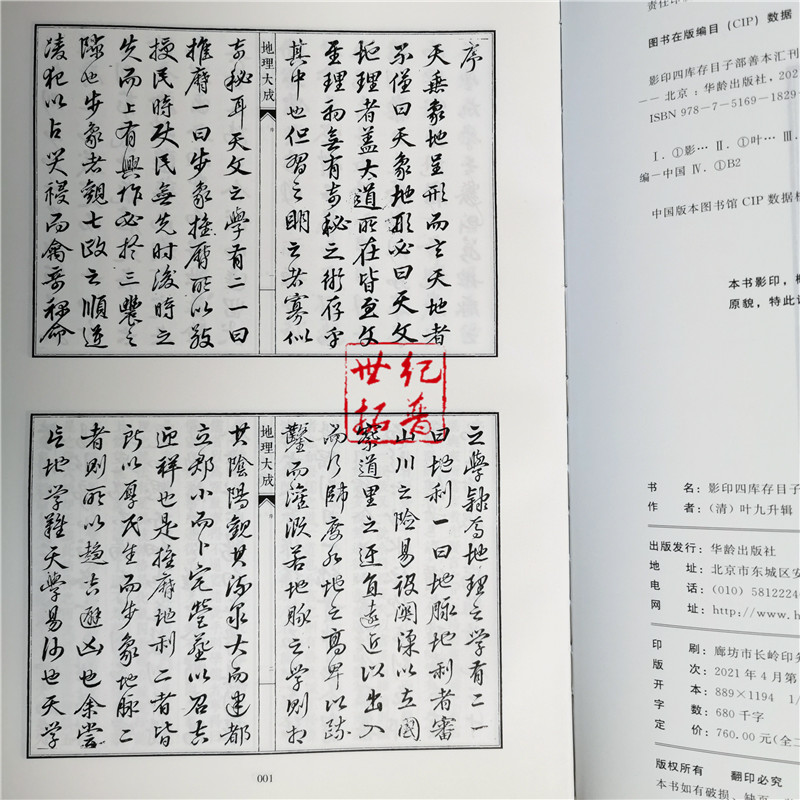 序
天垂象地呈形而言天地者
不僅曰天象地形必曰天文
地理者蓋大道所在皆至文
至理初無有奇秘之術存乎
其中也但習之明之者寡似
地理大成
序
一
奇秘耳天文之學有二一曰
推曆一曰步象推曆所以敬
授民時使民無先時後時之
失而上有興作必於三農之
隙也步象者觀七政之順逆
凌犯以占災祲而禽奇祿命
之學隸焉地理之學有二一
曰地利一曰地脉地利者審
山川之險易設關渠以立國
察道里之迂直遠近以出入
而行師度水地之高卑以疏
鑿而灌溉若地脉之學則相
地理大成
序
二
其陰陽觀其流泉大而建都
立郡小而卜宅營葬以召吉
迎祥也是推曆地利二者皆
所以厚民生而步象地脉二
者則所以趨吉避凶也余嘗
言地學難天學易何也天學
001
世纪
拓普
责任印
图书在版编目（CIP）数据
影印四库存目子部善本汇刊
—— 北京：华龄出版社，202
ISBN 978-7-5169-1829-
Ⅰ．①影… Ⅱ．①叶… Ⅲ．
编-中国 Ⅳ．①B2
中国版本图书馆 CIP 数据核
本书影印，概
原貌，特此
书 名：影印四库存目子
作 者：（清）叶九升辑
出版发行：华龄出版社
地 址：北京市东城区安
电 话：（010）58122246
网 址：http://www.h
印 刷：廊坊市长岭印务
版 次：2021 年 4 月第
开 本：889×1194 1/
字 数：680 千字
定 价：760.00 元（全二
版权所有 翻印必究
本书如有破损、缺页、